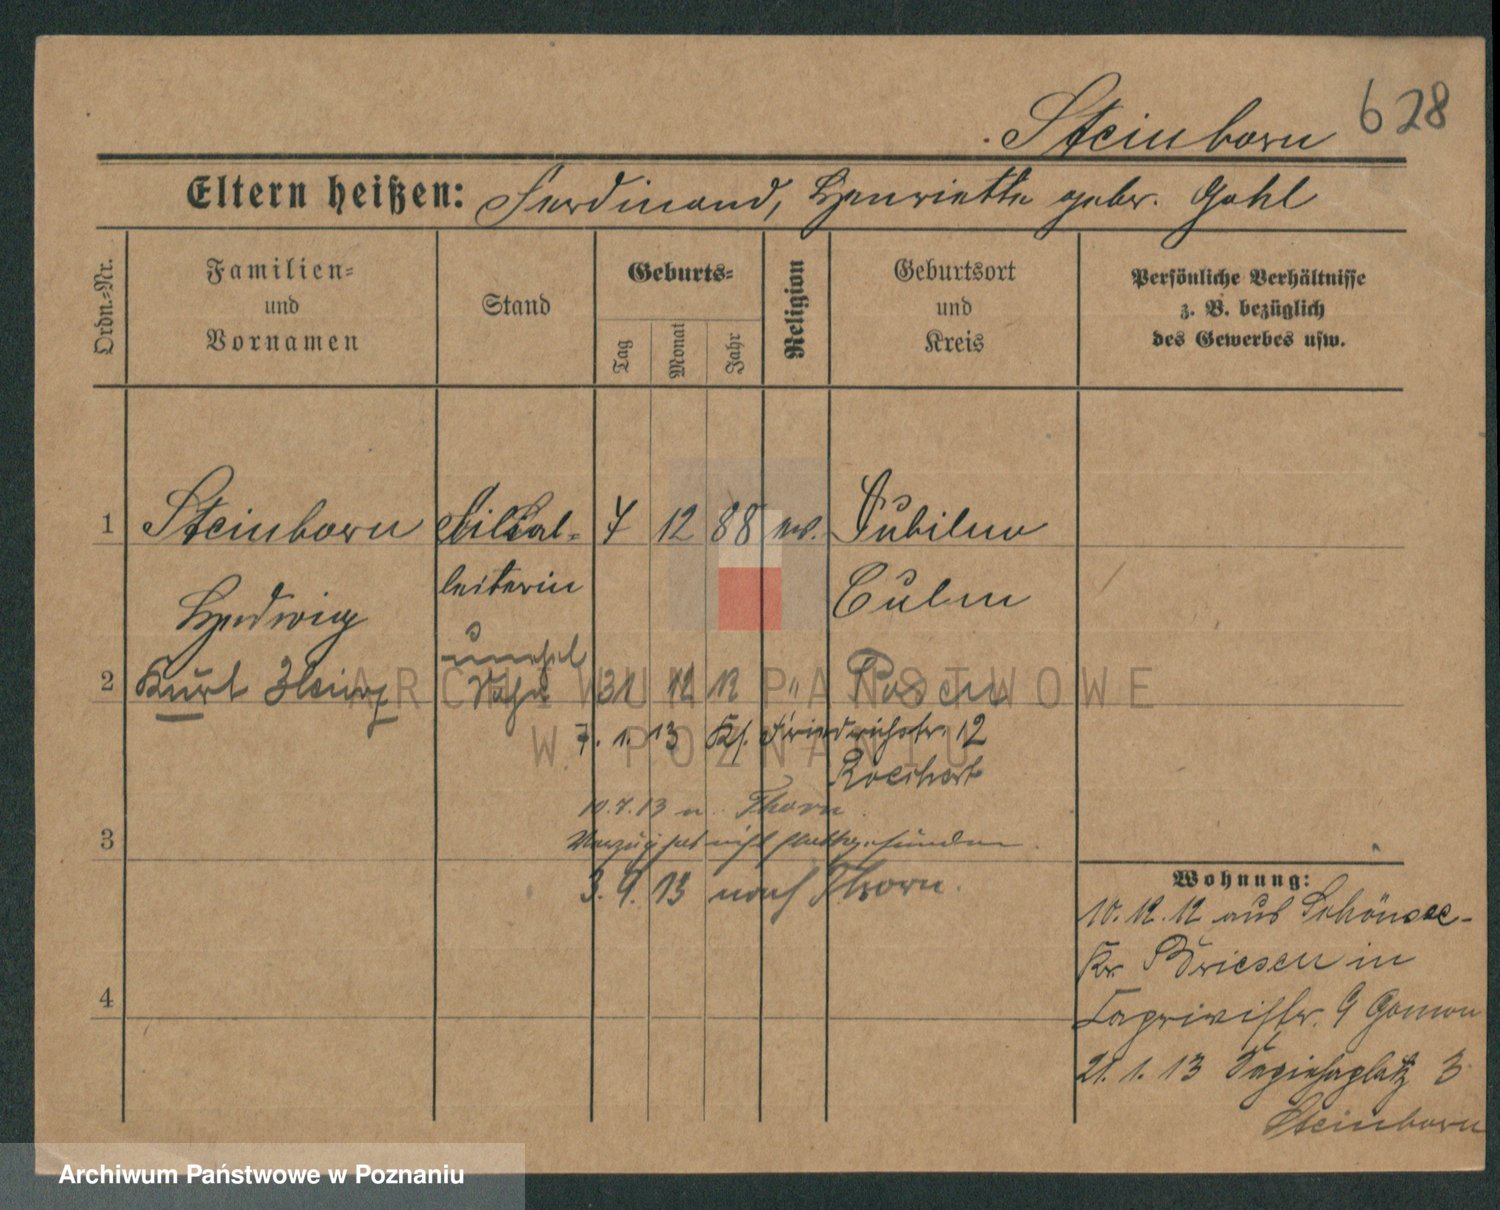 Steinborn 628
Eltern heißen: Ferdinand, Henriette gebr. Gohl
Ordn.=Nr.
Familien=
und
Vornamen
Stand
Geburts=
Tag
Monat
Jahr
Religion
Geburtsort
und
Kreis
Persönliche Verhältnisse
z. B. bezüglich
des Gewerbes usw.
1 Steinborn Filial= 7 12 88 ev.
Hedwig leiterin Culm
unehel
2 Kurt Heinz Sohn 31 12 12 " Posen
7. 1. 13 Kl. Friedrichstr. 12
10.7.13 n. Thorn
Verzug hat nicht stattgefunden
3
3. 9. 13 nach Thorn.
4
Wohnung:
10. 12. 12 aus Schönsee
Kr Briesen in
9
21. 1. 13 Sapiehaplatz 3
Steinborn
ARCHIWUM PAŃSTWOWE
W POZNANIU
Archiwum Państwowe w Poznaniu